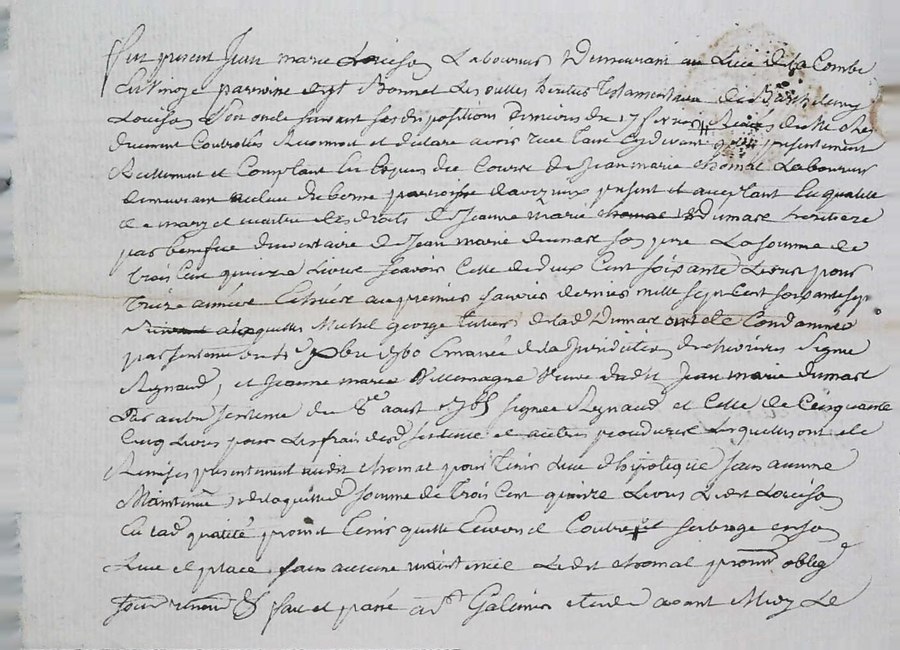 Fut present Jean marie Loeiso Laboureur Demeurant au Lieu de la Combe
parroisse de st Bonnet Les oulles heritier Testamentaire de Barthelemy
Loeiso Son oncle suivant ses dispositions dernieres du 17 fevrier
duement Controllés Reconnoit et declare avoir receu tant cy devant que presentement
Reellement et Comptant En Espèces de Cours de Jean marie chomat Laboureur
demeurant au lieu de parroisse daveizieux present et acceptant En qualité
de mary et maitre des droits de Jeanne marie chomat Dumas heritiere
par benefice dinventaire de Jean marie dumas son pere La somme de
trois Cent quinze Livres Scavoir Celle de deux Cent soixante Livres pour
treize années Echües au premier Janvier dernier mille sept Cent soixante sept
auxquelles Michel george tuteur de lad Dumas ont été Condamnés
par sentence du 4e xbre 1760 Emanée de la Juridiction de Signé
Reynaud, et Jeanne marie Villemagne Veuve dudit Jean marie dumas
Par autre sentence du 8e aoust 1765 signée Reynaud et Celle de Cinquante
Cinq Livres pour Les frais desd sentence et autres procedures Lesquelles ont été
Remises presentement audit chomat pour tenir Lieu d'hipoteque sans aucune
Maintenue, de laquelle somme de trois Cent quinze Livres Ledit Loeiso
En lad qualité promet tenir quitte Envers et Contre et Subroge en son
Lieu et place sans aucune maintenüe Ledit chomat prom oblig
Soum renon & fait et passé a st Galmier etude avant Midy Le